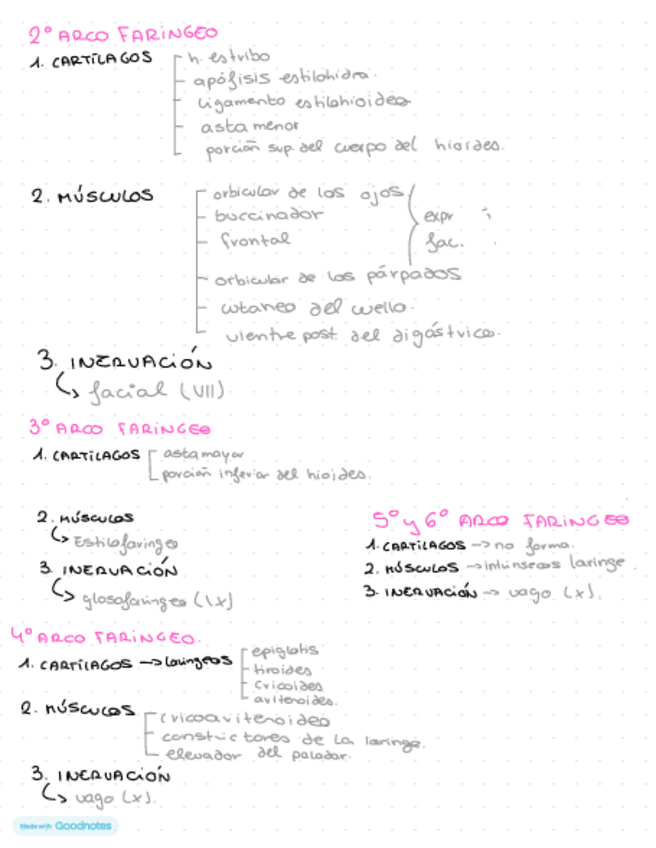 2º ARCO FARÍNGEO
1. CARTÍLAGOS
h. estribo
apófisis estilohidea.
ligamento estilohioideo
asta menor
porción sup. del cuerpo del hioides.
2. MÚSCULOS
orbicular de los ojos
buccinador
frontal
expr
fac.
orbicular de los párpados
cutaneo del cuello.
vientre post. del digástrico.
3. INERVACIÓN
↳ facial (VII)
3º ARCO FARINGEO
1. CARTÍLAGOS
asta mayor
porción inferior del hioides.
2. MÚSCULOS
↳ Estilofaringeo
3. INERVACIÓN
↳ glosofaringeo (IX)
5º y 6º ARCO FARINGEO
1. CARTÍLAGOS → no forma.
2. MÚSCULOS → intrínsecos laringe.
3. INERVACIÓN → vago (X).
4º ARCO FARÍNGEO.
1. CARTÍLAGOS → laríngeos
epiglotis
tiroides
cricoides
aritenoides.
2. MÚSCULOS
cricoaritenoideo
constrictores de la laringe.
elevador del paladar.
3. INERVACIÓN
↳ vago (X).
Made with Goodnotes